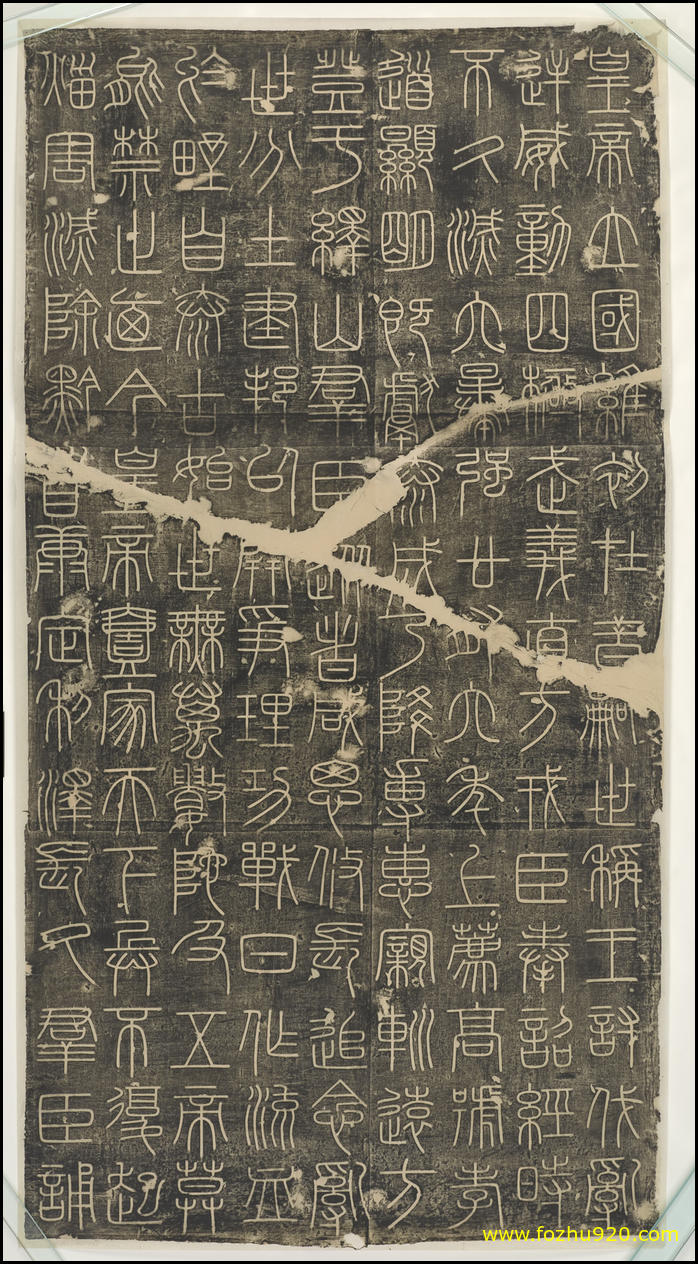 皇帝立國維初在昔嗣世稱王討伐亂
逆威動四極武義直方戎臣奉詔經時
不久滅六暴強廿有六年上薦高號孝
道顯明既獻泰成乃降專惠寴䡅遠方
登于繹山羣臣從者咸思攸長追念亂
世分土建邦以開爭理功戰日作流血
於野自泰古始世無萬數陀及五帝莫
能禁止迺今皇帝壹家天下兵不復起
烖害滅除黔首康定利澤長久羣臣誦
www.fozhu920.com